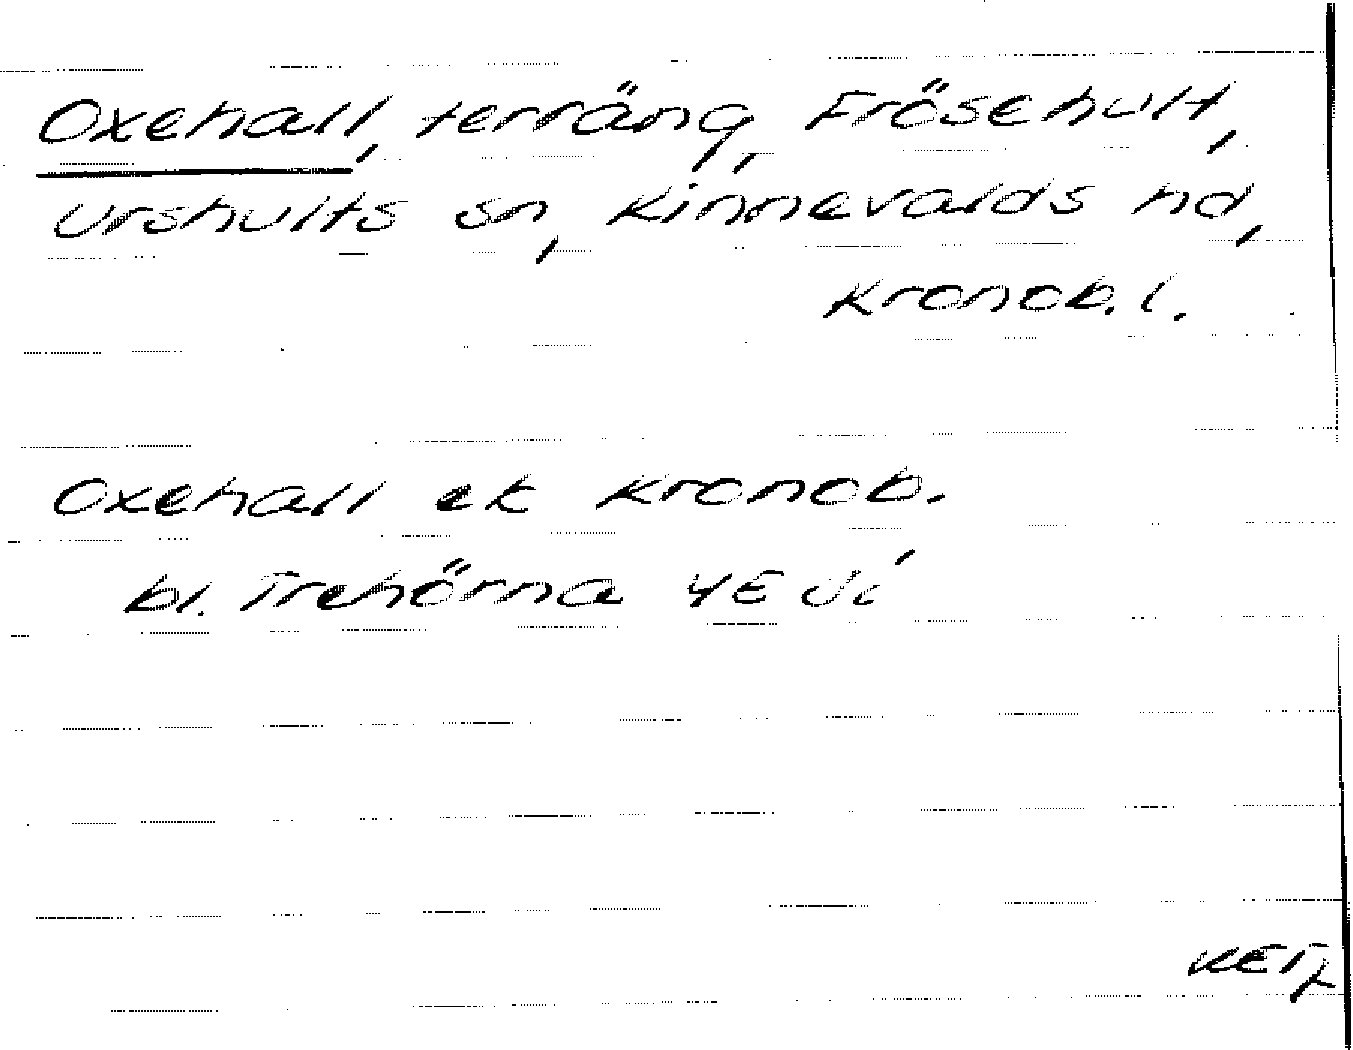 Oxehall, terräng, Frösehult,
Urshults sn, Kinnevalds hd,
Kronob. l.
Oxehall ek Kronob.
bl. Trehörna 4E